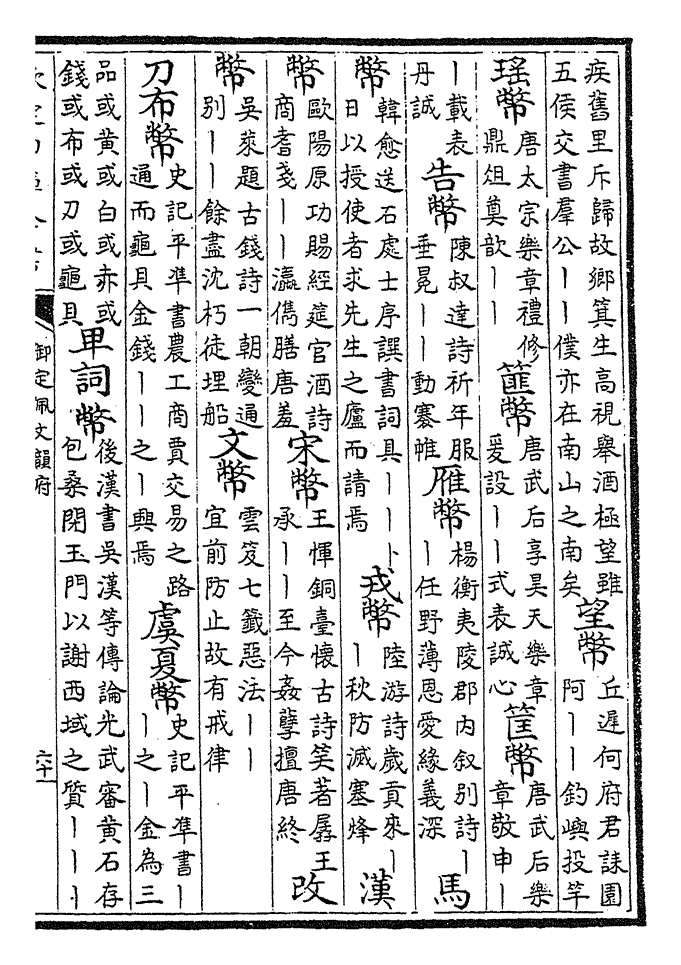 疾舊里斥歸故鄉箕生高視舉酒極望雖
五侯交書羣公丨丨僕亦在南山之南矣
望幣
丘遲何府君誄園
阿丨丨釣嶼投竿
瑤幣
唐太宗樂章禮修
鼎俎奠歆丨丨
篚幣
唐武后享昊天樂章
爰設丨丨式表誠心
筐幣
唐武后樂
章敬申丨
丨載表
丹誠
告幣
陳叔達詩祈年服
垂冕丨丨動褰帷
雁幣
楊衡夷陵郡内叙别詩丨
丨任野薄恩愛緣義深
馬
幣
韓愈送石處士序譔書詞具丨丨卜
日以授使者求先生之廬而請焉
戎幣
陸游詩歲貢來丨
丨秋防滅塞烽
漢
幣
歐陽原功賜經筵官酒詩
商耆戔丨丨瀛儁膳唐羞
宋幣
王惲銅臺懷古詩笑著孱王
承丨丨至今姦孽擅唐終
改
幣
吳萊題古錢詩一朝變通
别丨丨餘盡沈朽徒埋船
文幣
雲笈七籤惡法丨丨
宜前防止故有戒律
刀布幣
史記平準書農工商賈交易之路
通而龜貝金錢丨丨之丨興焉
虞夏幣
史記平準書丨
丨之丨金為三
品或黄或白或赤或
錢或布或刀或龜貝
卑詞幣
後漢書吳漢等傳論光武審黄石存
包桑閉玉門以謝西域之質丨丨丨
御定佩文韻府